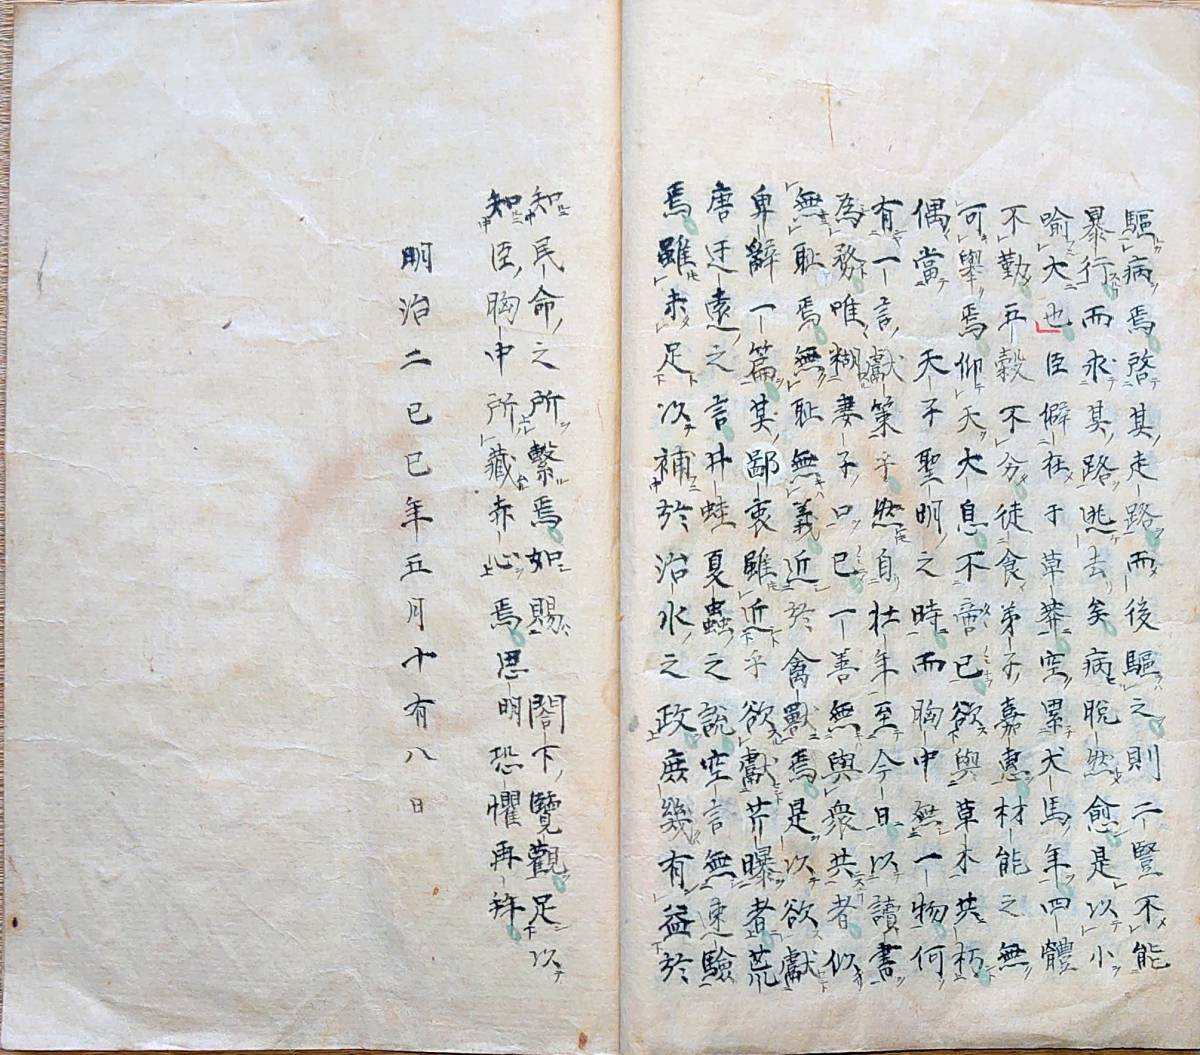 驅病焉啓其走路而後驅之則二豎不能
暴行而求其路逃去矣病脱然愈是以小
喻大也臣僻在于草莽空累犬馬年四體
不勤五穀不分徒食弟子嘉惠材能之無
可舉焉仰天大息不啻已欲與草木共朽
偶當 天子聖明之時而胸中無一物何
有一言獻策乎然自壯年至今日以讀書
為務唯糊妻子口已一善無與衆共者似
無恥焉無恥無義近於禽獸焉是以欲獻
卑辭一篇其鄙衷雖近乎欲獻芹曝者荒
唐迂遠之言井蛙夏蟲之説空言無速驗
焉雖未足以補於治水之政庶幾有益於
知民命之所繫焉如賜 閣下覽觀足以
知臣胸中所藏赤心焉思明恐懼再拜
明治二己巳年五月十有八日